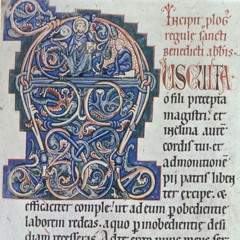 Incipit plog
regule sancti
benedicti abbis.
USCULTA
o fili precepta
magistri, et
inclina aure
cordis tui et
admonitione
pii patris liben
ter excipe, et
efficaciter comple; ut ad eum p obedientie
laborem redeas, a quo p inobedientie desi
diam recesseras. Ad te ergo nunc meus ser